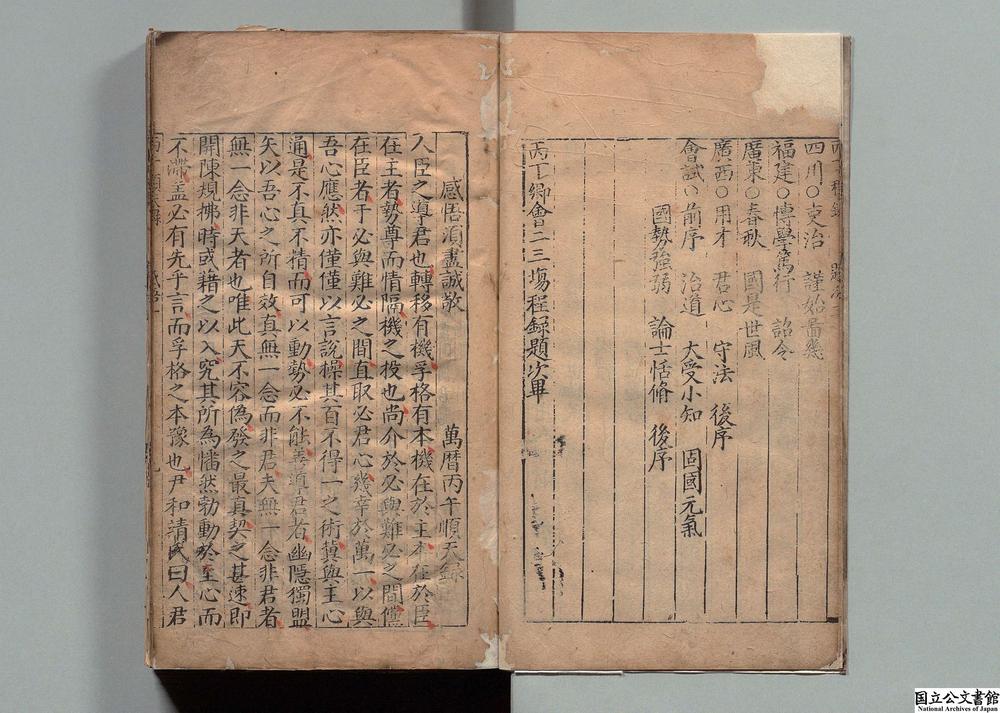 四川○吏治　謹始審幾
福建○博學篤行　詔令
廣東○春秋　國是世風
廣西○用才　君心　守法　後序
會試○前序　治道　大受小知　固國元氣
國勢強弱　論士恬脩　後序
丙丁鄉會二三塲程録題次畢
感悟須盡誠敬　萬曆丙午順天録
人臣之導君也轉移有機孚格有本機在於主本在於臣
在主者勢尊而情隔機之投也尚介於必與難必之間儻
在臣者于必與難必之間直取必君心幾幸於萬一以與
吾心應然亦僅僅以言說操其百不得一之術冀與主心
通是不真不情而可以動勢必不能善導君者幽隱獨盟
矢以吾心之所自效真無一念而非君夫無一念非君者
無一念非天者也唯此天不容偽發之最真契之甚速即
開陳規拂時或藉之以入究其所為憣然勃動於至心而
不滯盖必有先乎言而孚格之本豫也尹和靖氏曰人君
国立公文書館
National Archives of Japan